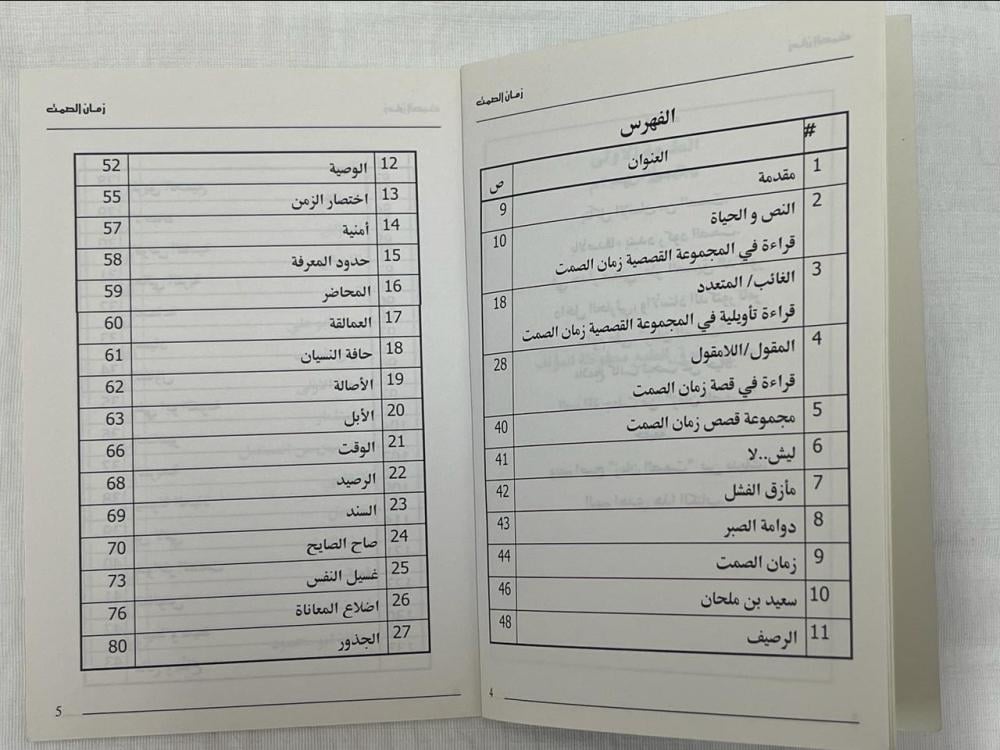 زمان الصمت
الفهرس
# العنوان ص
1 مقدمة 9
2 النص و الحياة 10
قراءة في المجموعة القصصية زمان الصمت
3 الغائب/ المتعدد 18
قراءة تأويلية في المجموعة القصصية زمان الصمت
4 المقول/اللامقول 28
قراءة في قصة زمان الصمت
5 مجموعة قصص زمان الصمت 40
6 ليش..لا 41
7 مأزق الفشل 42
8 دوامة الصبر 43
9 زمان الصمت 44
10 سعيد بن ملحان 46
11 الرصيف 48
4
زمان الصمت
12 الوصية 52
13 اختصار الزمن 55
14 أمنية 57
15 حدود المعرفة 58
16 المحاضر 59
17 العمالقة 60
18 حافة النسيان 61
19 الأصالة 62
20 الأبل 63
21 الوقت 66
22 الرصيد 68
23 السند 69
24 صاح الصايح 70
25 غسيل النفس 73
26 اضلاع المعاناة 76
27 الجذور 80
5